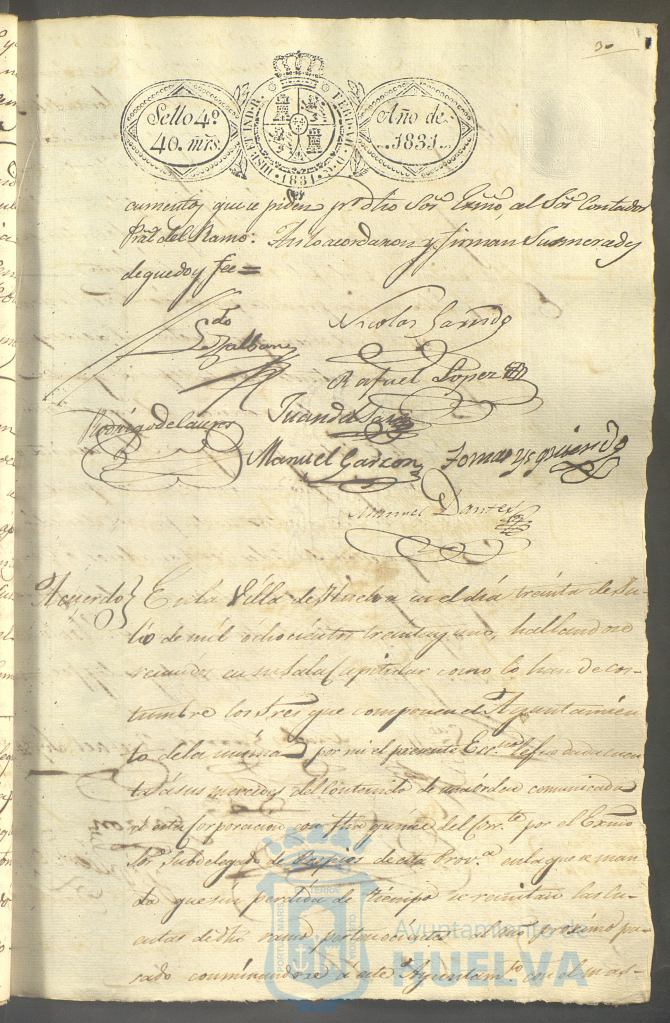 3
Sello 4º
40. mrs.
HISP. ET IND. R. FERD. VII. D. G. 1831.
Año de
1831.
cumentos que se piden pr. dho Sor. Exmo, al Sor. Contador
Pral. del Ramo: Asi lo acordaron y firman Sus mercedes
de que doy fee=
Nicolas Garrido
Rafael Lopez
Rodrigo de
Juan de
Manuel Garzon Tomas Ysquierdo
Manuel Dantes
Acuerdo} En la Villa de Huelva en el dia treinta de Ju-
lio de mil ochocientos treinta y uno, hallandose
reunidos en su Sala Capitular como lo han de cos-
tumbre los Sres que componen el Ayuntamien-
to de la misma por mi el presente Ess.no les fue dada cuen-
ta á sus mercedes del contenido de una órden comunicada
á esta corporacion con fha quince del Corr.te por el Exmo
Sor. Subdelegado de Propios de esta Prov.a en la que se man-
da que sin perdida de tiempo se remitan las Cu-
entas de dho ramo pertenecientes al año proximo pa-
sado conminandose á este Ayuntam.to con el mas-
PORTUS MARIS ET TERRAE CUSTODIA
Ayuntamiento de
HUELVA